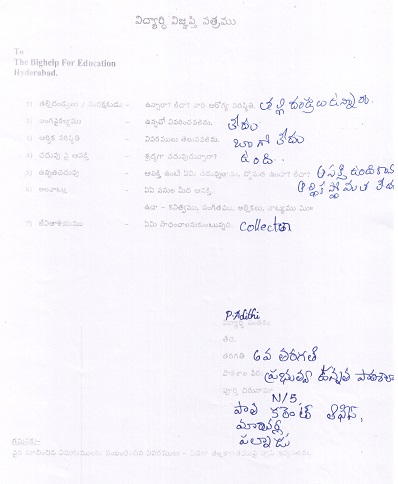 విద్యార్థి విజ్ఞప్తి పత్రము
To
The Bighelp For Education
Hyderabad.
1) తల్లిదండ్రులు / సంరక్షకుడు - ఉన్నారా? లేదా? వారి ఆరోగ్య పరిస్థితి. తల్లి దండ్రులు ఉన్నారు.
2) అంగవైకల్యము - ఉన్నచో వివరించవలెను. లేదు
3) ఆర్థిక పరిస్థితి - వివరములు తెలుపవలెను. బాగా లేదు
4) చదువు పై ఆసక్తి - శ్రద్ధగా చదువుతున్నారా? ఉంది.
5) ఉన్నతచదువు - ఆసక్తి ఉంటే ఏమి చదువుతారు, స్తోమత ఉందా? లేదా? ఆసక్తి ఉంది కాని
ఆర్థిక స్తోమత లేదు
6) అలవాట్లు - ఏయే పనుల మీద ఆసక్తి.
ఉదా - కవిత్వము, సంగీతము, ఆటలు, నాట్యము
7) జీవితాశయము - ఏమి సాధించాలనుకుంటున్నది. collectరు
P. Adithi
విద్యార్థి సంతకం
తేది.
తరగతి 6వ తరగతి
పాఠశాల పేరు ప్రభుత్వ ఉన్నత పాఠశాల
పూర్తి చిరునామా
N/5,
పాత కరెంట్ ఆఫీస్,
మాచర్ల
పల్నాడు
గమనిక:-